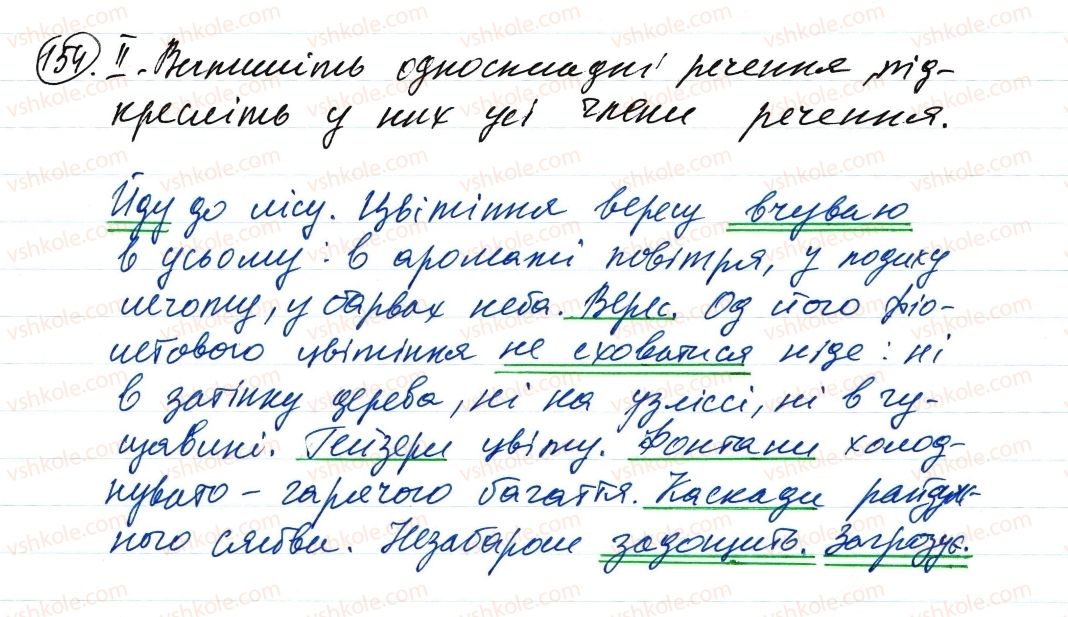 154. II. Випишіть односкладні речення, під-
кресліть у них усі члени речення.
Йду до лісу. Цвітіння вересу вчуваю
в усьому: в ароматі повітря, у подиху
льоту, у барвах неба. Верес. Од його фіо-
летового цвітіння не сховатися ніде: ні
в затінку дерева, ні на узліссі, ні в гу-
щавині. Гейзери цвіту. Фонтани холод-
нувато - гарячого багаття. Каскади райдуж-
ного сяйва. Незабаром задощить. Загрозує.